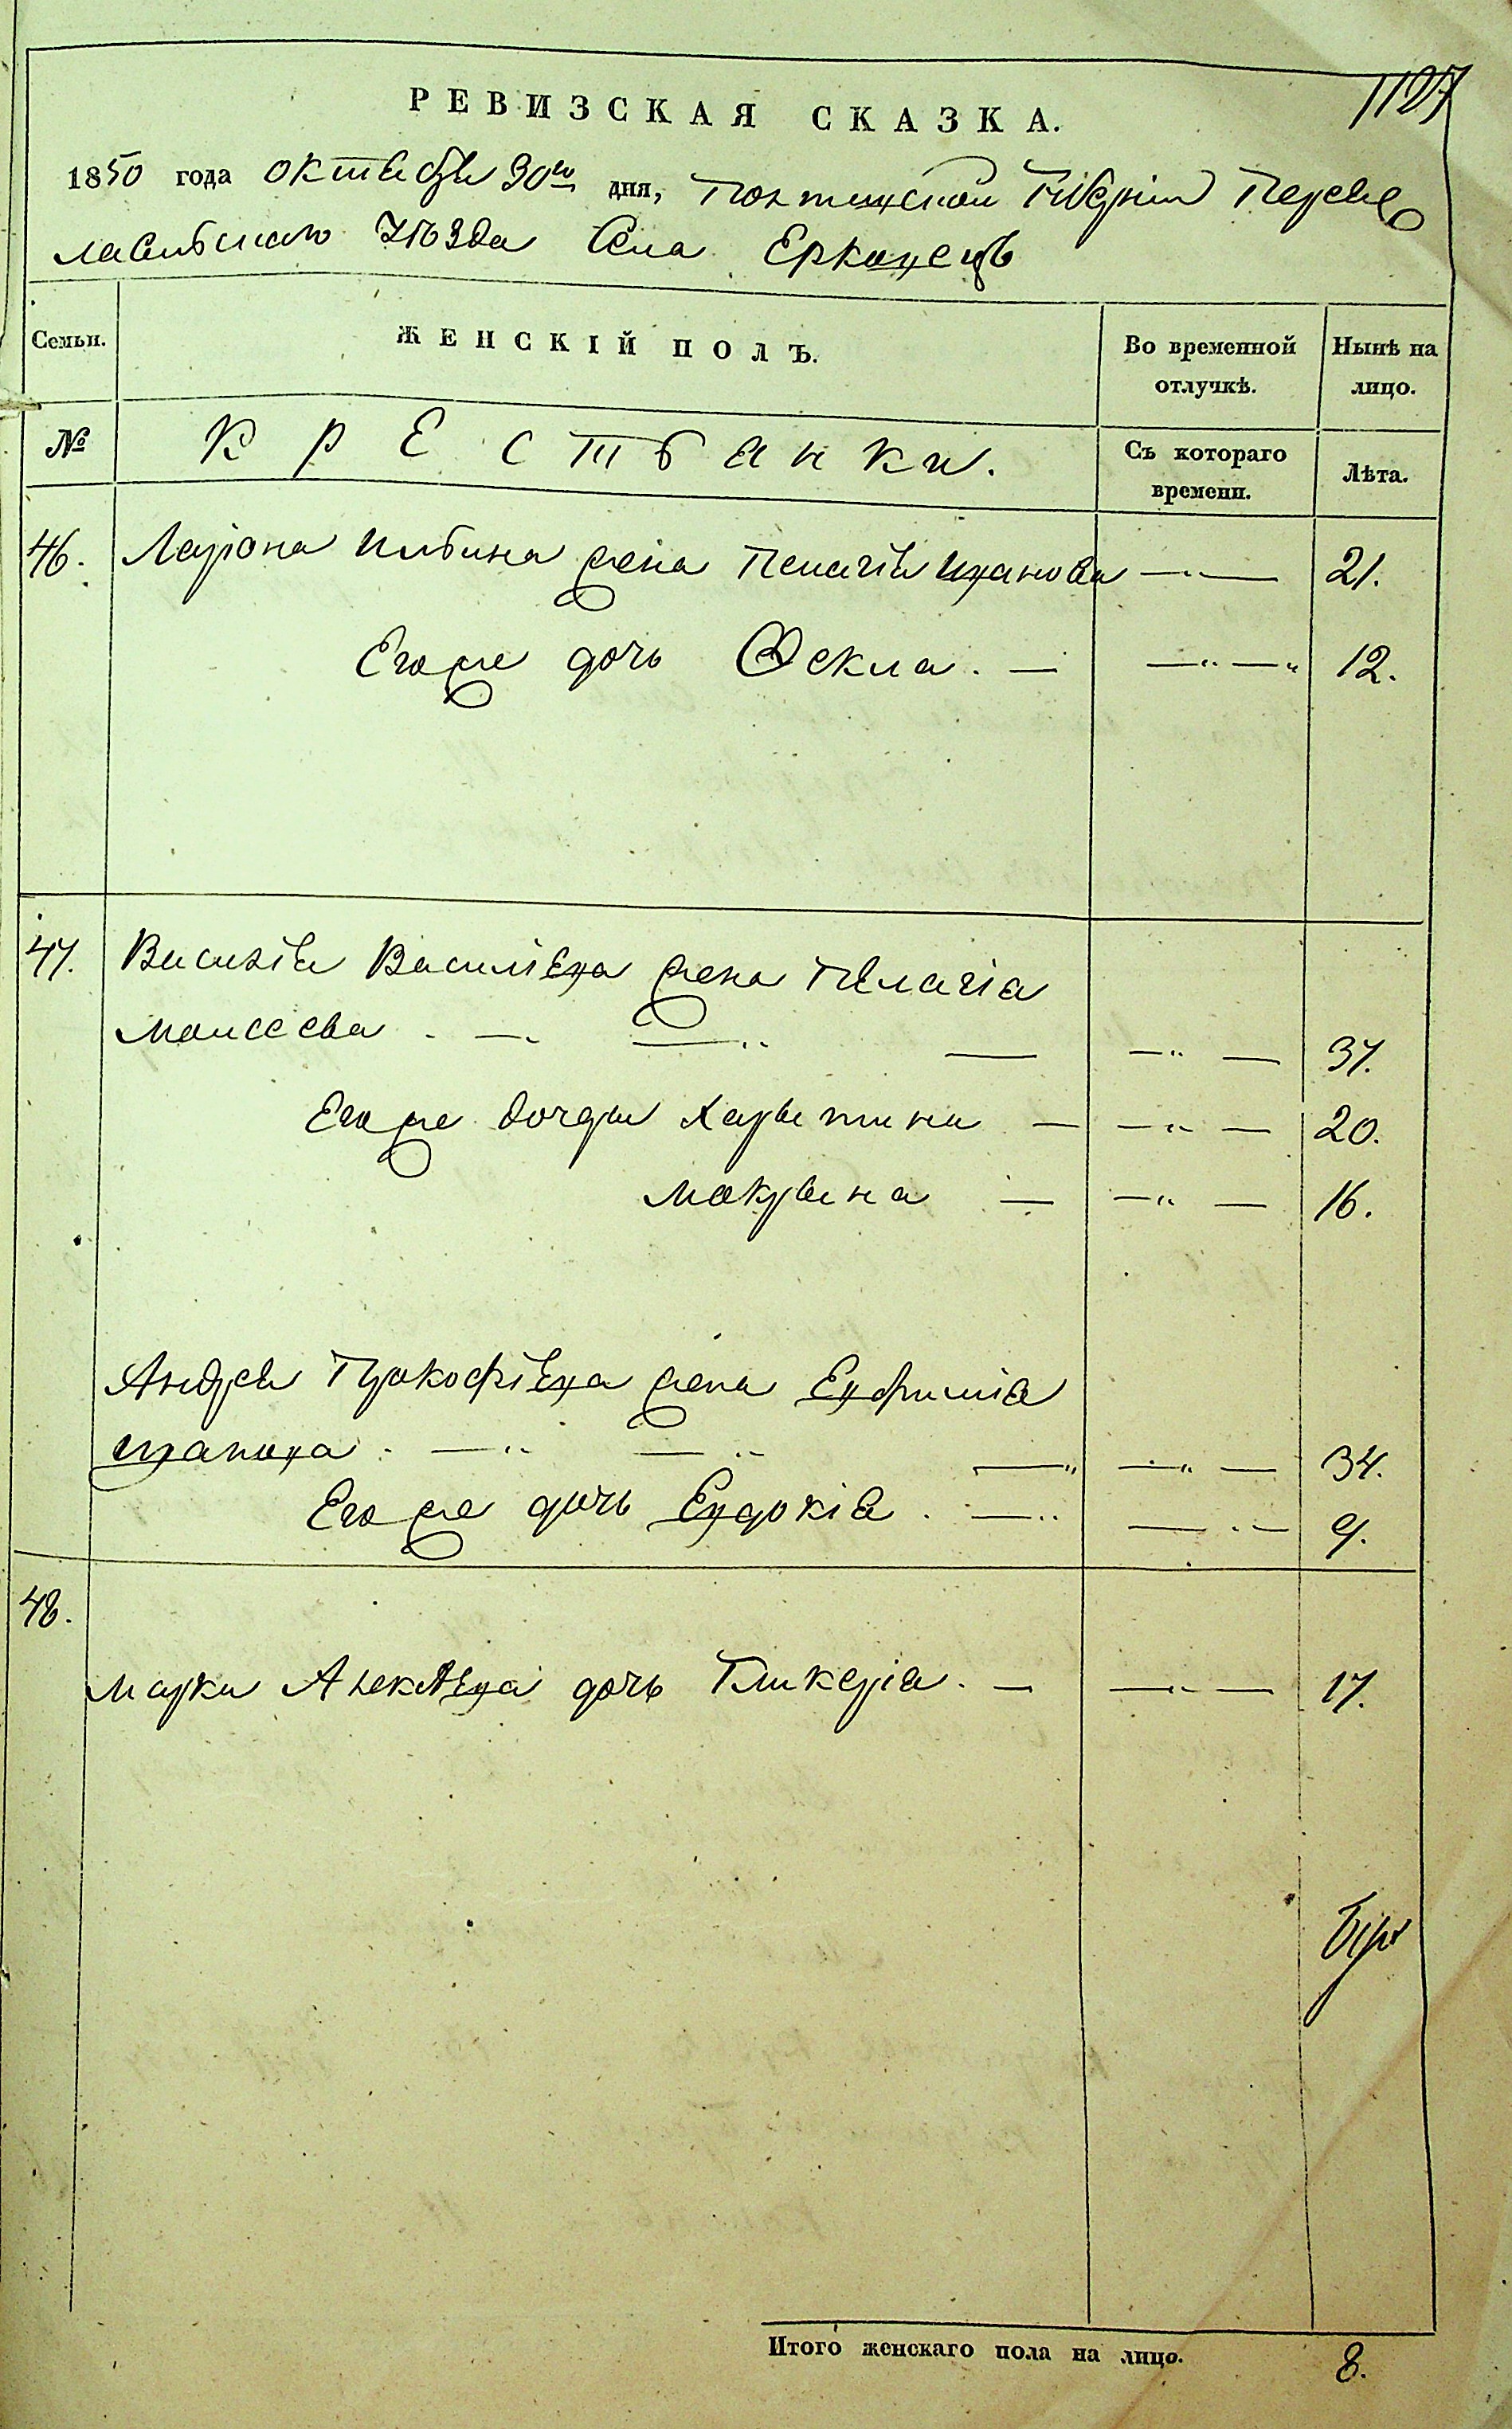 1107
РЕВИЗСКАЯ СКАЗКА.
1850 года октября 30го дня, Полтавской Губернии Перея
лавльскаго Уѣзда СелаЕрковецъ
Семьи. ЖЕНСКІЙ ПОЛЪ. Во временной отлучкѣ. Нынѣ на лицо.
№ Крестьянки. Съ котораго времени. Лѣта.
46. Лариона Ильина жена Пелагія Иванова — 21.
Его же дочь Ѳекла. — — „ — „ 12.
47. Василія Василіева жена Пелагія
Моисеева . — — „ — — „ — 37.
Его же дочери Харытина — — „ — 20.
Макрина — — „ — 16.
Андрея Прокофіева жена Евфимія
Иванова . — „ — „ — „ — „ — 34.
Его же дочь Евдокія . — „ — „ — 9.
48.
Марка Алексѣева дочь Гликерія . — — „ — 17.
Итого женскаго пола на лицо. 8.